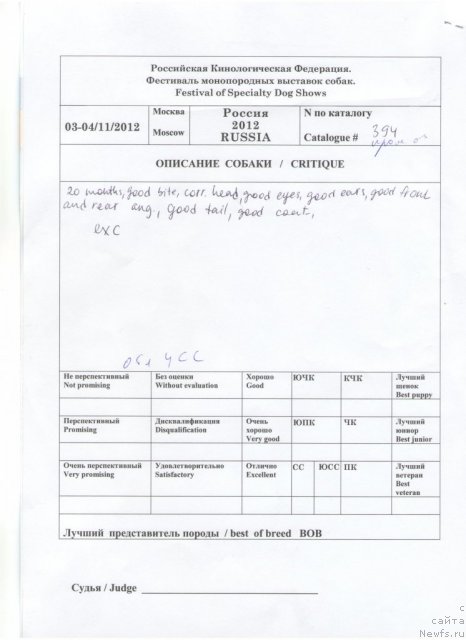 Российская Кинологическая Федерация.
Фестиваль монопородных выставок собак.
Festival of Specialty Dog Shows
03-04/11/2012
Москва
Moscow
Россия
2012
RUSSIA
N по каталогу
Catalogue # 394
ОПИСАНИЕ СОБАКИ / CRITIQUE
20 months, good bite, corr. head, good eyes, good ears, good front
and rear ang., Good tail, good coat,
exc
ЧСС
Не перспективный
Not promising
Без оценки
Without evaluation
Хорошо
Good
ЮЧК
КЧК
Лучший
щенок
Best puppy
Перспективный
Promising
Дисквалификация
Disqualification
Очень
хорошо
Very good
ЮПК
ЧК
Лучший
юниор
Best junior
Очень перспективный
Very promising
Удовлетворительно
Satisfactory
Отлично
Excellent
СС
ЮСС
ПК
Лучший
ветеран
Best
veteran
Лучший представитель породы / best of breed BOB
Судья / Judge
с
сайта
Newfs.ru